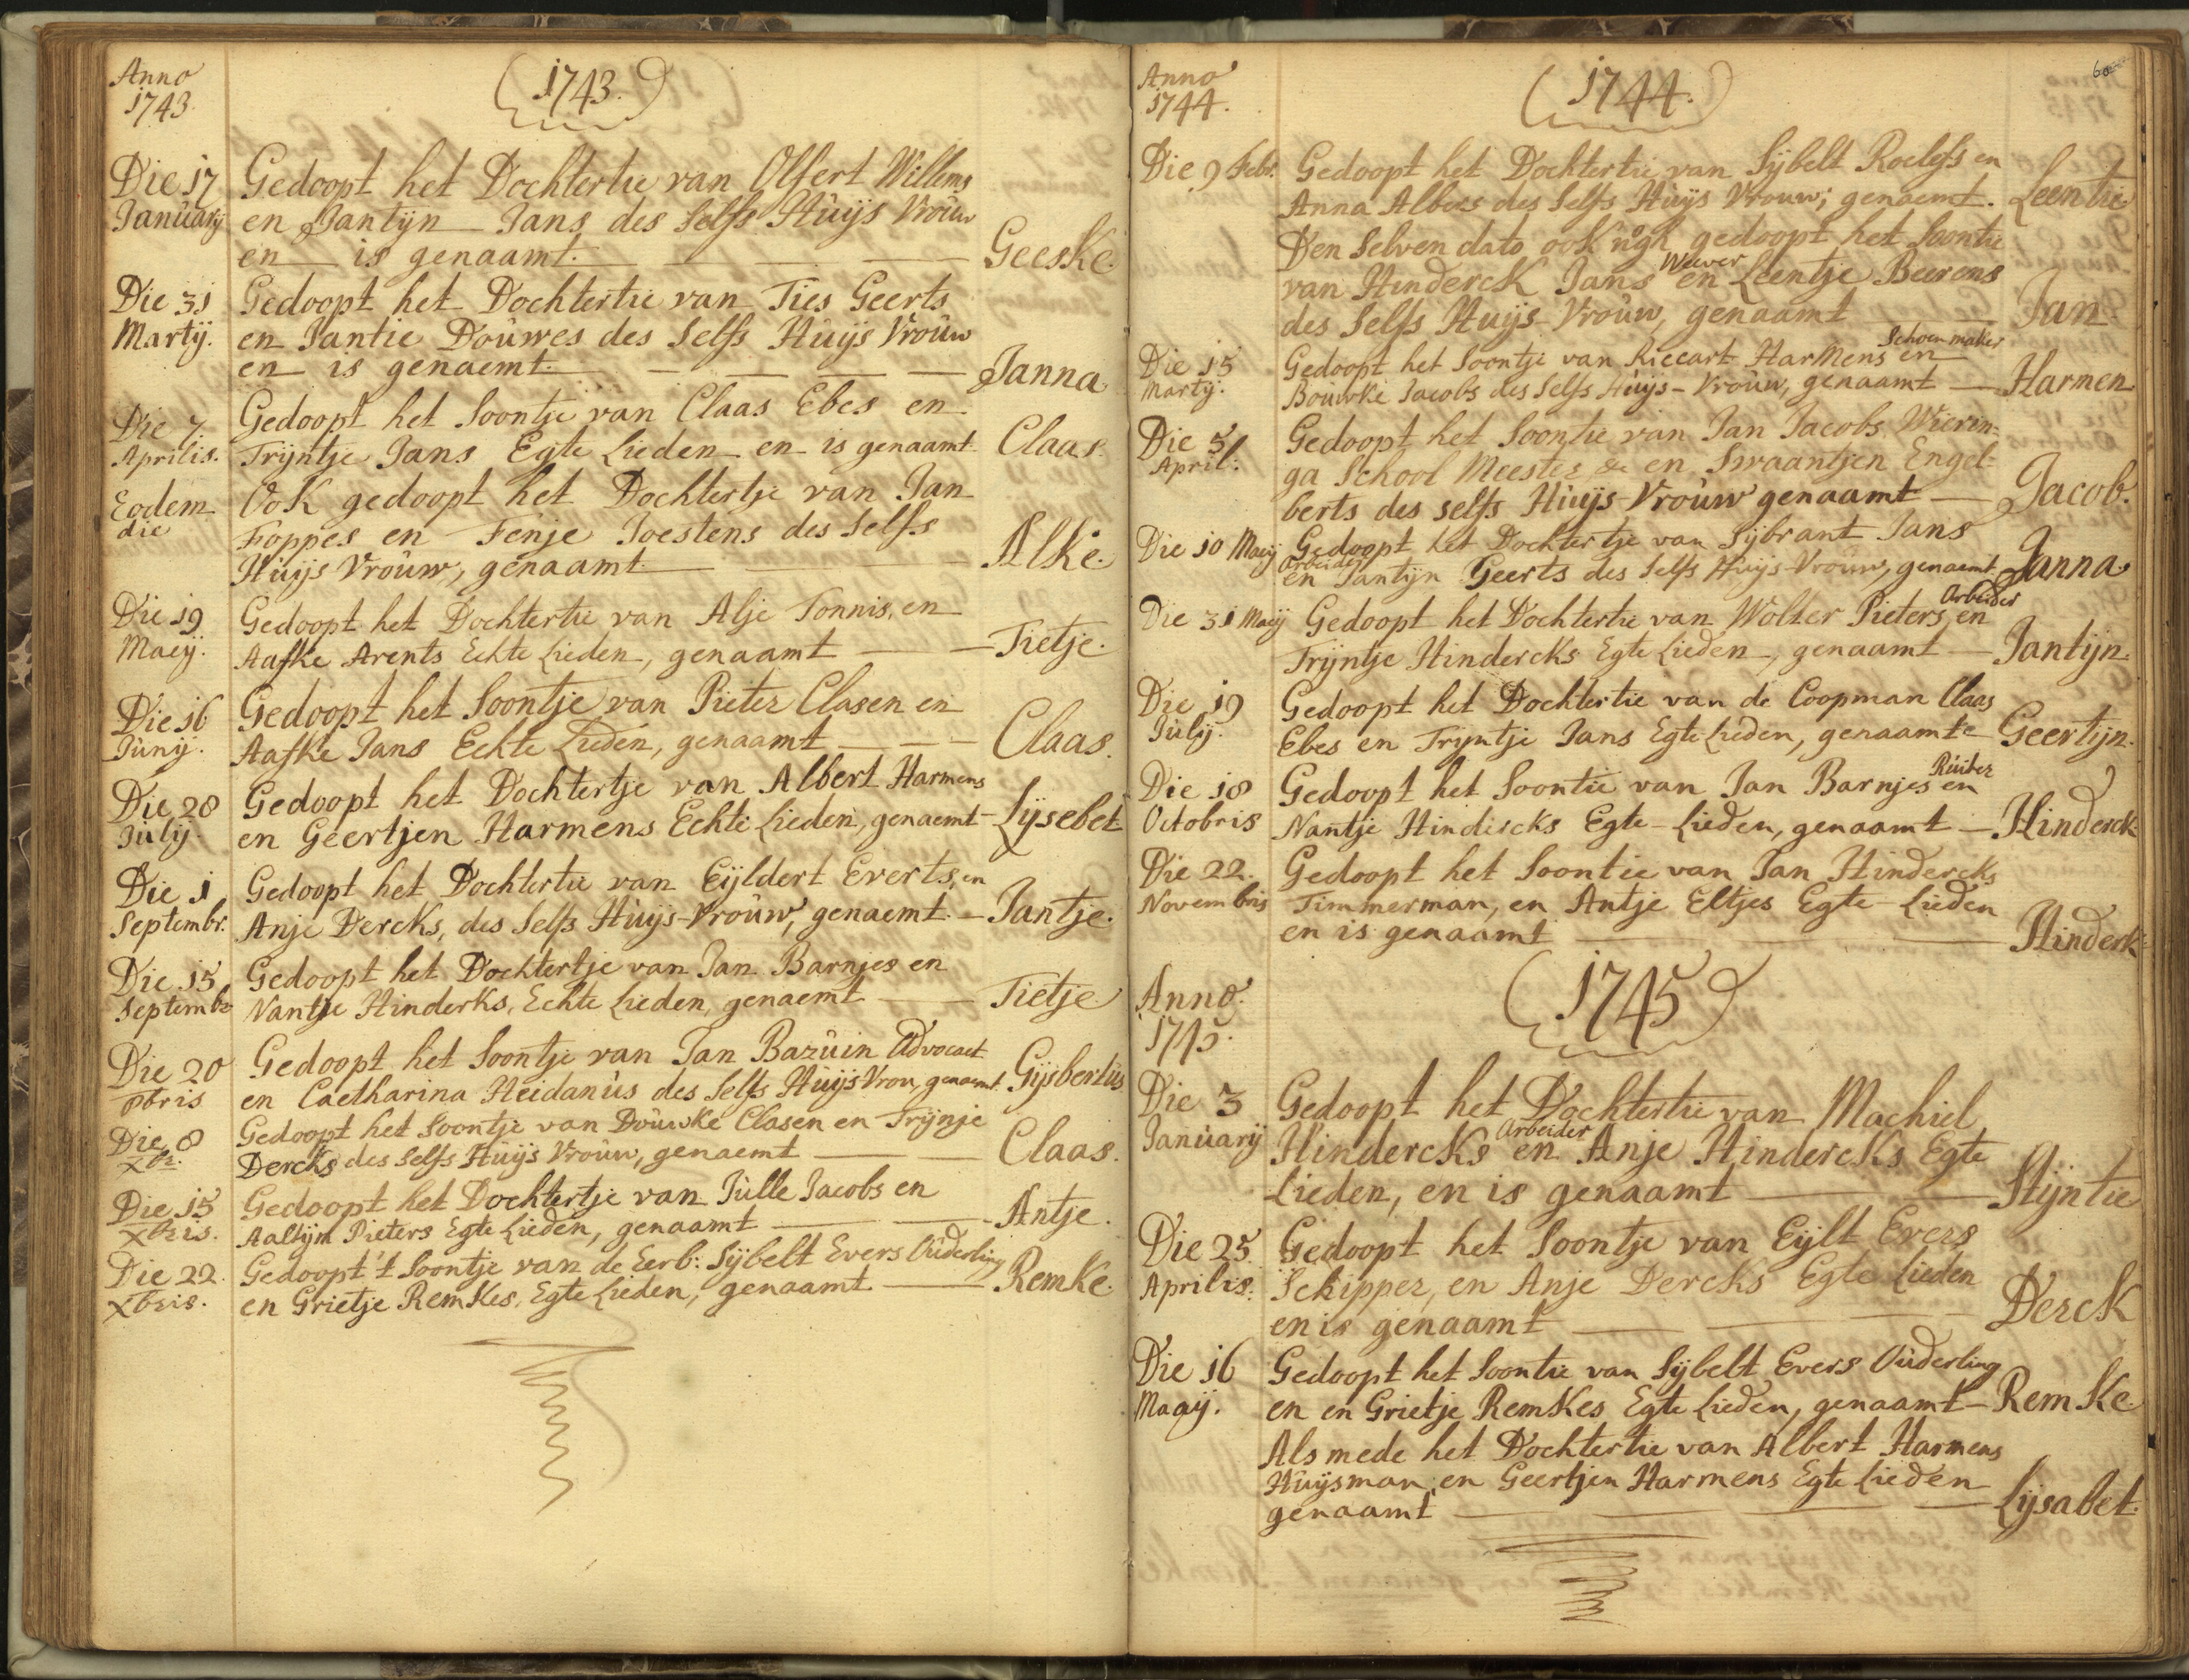 Anno
1743.
(1743.)
Die 17
Januarij
Gedoopt het Dochtertie van Olfert Willems
en Jantijn Jans des Selfs Huijs Vrouw
en is genaamt. Geeske.
Die 31
Martij.
Gedoopt het Dochtertie van Ties Geerts
en Jantie Douwes des Selfs Huijs Vrouw
en is genaemt. Janna
Die 7
Aprilis.
Gedoopt het Soontje van Claas Ebes en
Trijntje Jans Egte Lieden en is genaamt Claas.
Eodem
die
Ook gedoopt het Dochtertje van Jan
Foppes en Fenje Joestens des Selfs
Huijs Vrouw, genaamt Alke.
Die 19
Maeij.
Gedoopt het Dochtertie van Alje Tonnis, en
Aafke Arents Echte Lieden, genaamt Tietje.
Die 16
Junij.
Gedoopt het Soontje van Pieter Clasen en
Aafke Jans Echte Lieden, genaamt Claas.
Die 28
Julij.
Gedoopt het Dochtertje van Albert Harmens
en Geertjen Harmens Echte Lieden, genaemt Lijsebet
Die 1
Septembr.
Gedoopt het Dochtertie van Eijldert Everts, en
Anje Dercks, des Selfs Huijs-Vrouw, genaemt. Jantje.
Die 15
Septembr
Gedoopt het Dochtertje van Jan Barnjes en
Nantje Hinderks, Echte Lieden, genaemt Tietje.
Die 20
8bris
Gedoopt het Soontje van Jan Bazuin Advocaet
en Caetharina Heidanus des Selfs Huijs Vrou, genaemt. Gijsbertus
Die 8
Xbr.
Gedoopt het Soontje van Douwke Clasen en Trijnje
Dercks des Selfs Huijs Vrouw, genaemt Claas.
Die 15
Xbris.
Gedoopt het Dochtertje van Julle Jacobs en
Aaltijn Pieters Egte Lieden, genaamt Antje.
Die 22.
Xbris.
Gedoopt 't Soontje van de Eerb: Sijbelt Evers Ouderling
en Grietje Remkes, Egte Lieden, genaamt Remke.
Anno
1744.
(1744.)
Die 9 Febr.
Gedoopt het Dochtertie van Sijbelt Roelefs en
Anna Albers des Selfs Huijs Vrouw, genaemt. Leentie
Den Selven dato ook nogh gedoopt het Soontie
Weever
van Hinderck Jans en Leentje Beerens
des Selfs Huijs Vrouw, genaamt Jan.
Schoenmaker
Die 15
Martij.
Gedoopt het Soontje van Riccart Harmens en
Bouwke Jacobs des Selfs Huijs-Vrouw, genaamt Harmen
Die 5
April:
Gedoopt het Soontie van Jan Jacobs Wierin-
ga School Meester & en Swaantjen Engel-
berts des selfs Huijs-Vrouw genaamt Jacob.
Die 10 Maeij
Gedoopt het Dochtertje van Sijbrant Jans
Arbeider
en Jantijn Geerts des Selfs Huijs-Vrouw, genaemt Janna
Arbeider
Die 31 Maeij
Gedoopt het Dochtertie van Wolter Pieters, en
Trijntje Hindercks Egte Lieden, genaamt Jantijn.
Die 19
Julij.
Gedoopt het Dochtertie van de Coopman Claas
Ebes en Trijntje Jans Egte Lieden, genaamt Geertijn.
Ruiter
Die 18
Octobris
Gedoopt het Soontie van Jan Barnjes en
Nantje Hindercks Egte-Lieden, genaamt Hinderck
Die 22.
Novembris
Gedoopt het Soontie van Jan Hindercks
Timmerman, en Antje Eltjes Egte Lieden
en is genaamt Hinderk
Anno.
1745.
(1745)
Die 3
Januarij
Gedoopt het Dochtertie van Machiel
Arbeider
Hindercks en Anje Hindercks Egte
Lieden, en is genaamt Stijntie
Die 25
Aprilis.
Gedoopt het Soontje van Eijlt Evers
Schipper, en Anje Dercks Egte Lieden
en is genaamt Derck
Die 16
Maaij.
Gedoopt het Soontie van Sijbelt Evers Ouderling
en en Grietje Remkes Egte Lieden, genaamt Remke.
Als mede het Dochtertie van Albert Harmens
Huijsman, en Geertjen Harmens Egte Lieden
genaamt Lijsabet.